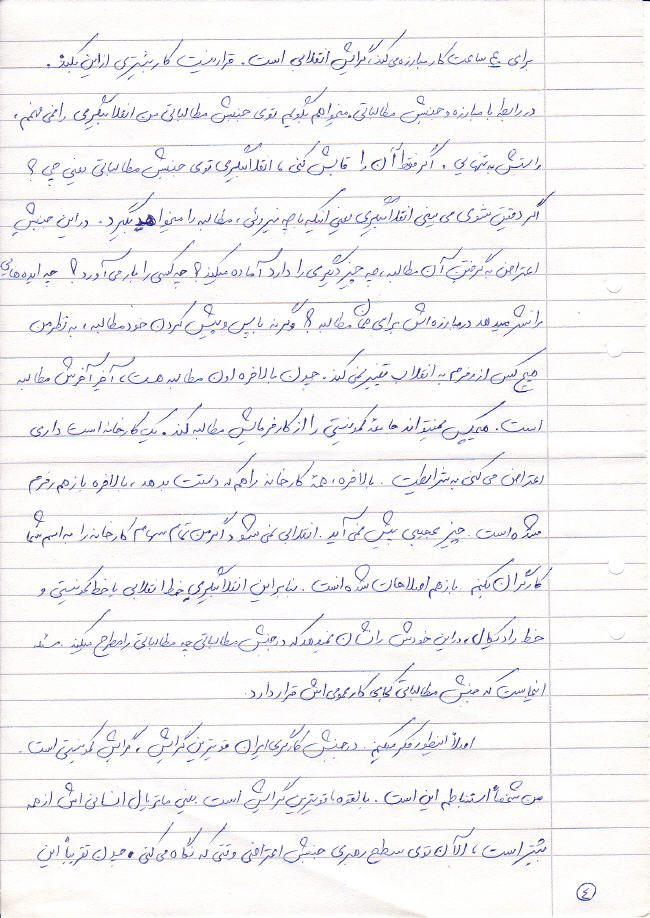 برای ۴ ساعت کار مبارزه می‌کند، گرایش انقلابی است. قرار نیست کار بیشتری از این بکند.
در رابطه با مبارزه و جنبش مطالباتی. میخواهم بگویم توی جنبش مطالباتی من انقلابیگری را نمی فهمم،
راستش به تنهایی. اگر فقط آن را قابش کنی، انقلابیگری توی جنبش مطالباتی یعنی چی؟
اگر دقیق بشوی می بینی انقلابیگری یعنی اینکه با چه نیروئی، مطالبه را میخواهد بگیرد. در این جنبش
اعتراض به گرفتن آن مطالبه، چه چیز دیگری را دارد آماده میکند؟ چه کسی را بار می آورد؟ چه ایده هایی
را نشر میدهد در مبارزه اش برای همان مطالبه؟ وگرنه با پس و پیش کردن خود مطالبه، به نظر من
هیچ کس از رفرم به انقلاب تغییر نمی کند. چون بالاخره اول مطالبه است، آخر آخرش مطالبه
است. هیچکس نمیتواند جامعهٔ کمونیستی را از کارفرمایش مطالبه کند. یک کارخانه است داری
اعتراض می کنی به شرایطت. بالاخره، همهٔ کارخانه را هم که به دستت بدهد، بالاخره باز هم رفرم
شده است. چیز عجیبی پیش نمی آید. انقلابی نمی شود اگر من تمام سهام کارخانه را به اسم شما
کارگران بکنم. باز هم اصلاحات شده است. بنابراین انقلابیگری خط انقلابی یا خط کمونیستی و
خط رادیکال، در این خودش را نشان نمیدهد که در جنبش مطالباتی چه مطالباتی را مطرح میکند. مسئله
اینجاست که جنبش مطالباتی کجای کار عمومی اش قرار دارد.
اولاً اینطور فکر میکنم. در جنبش کارگری ایران قویترین گرایش، گرایش کمونیستی است.
من شخصاً استنباطم این است. بالقوه، قویترین گرایش است. یعنی ماتریال انسانی اش از همه
بیشتر است، الآن توی سطح رهبری جنبش اعتراضی وقتی که نگاه می کنی. چون تقریباً این
٤